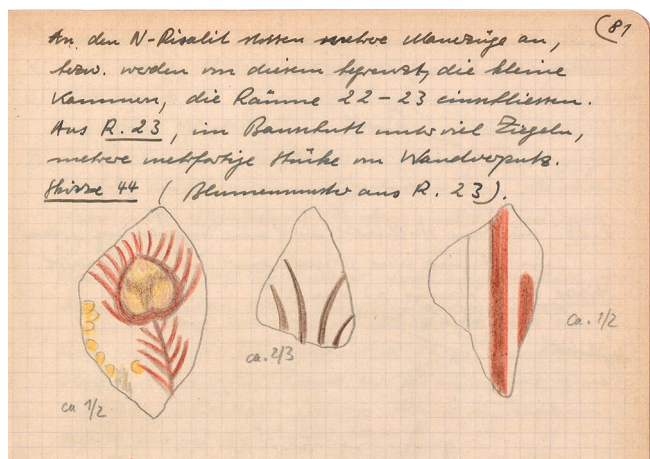 (81
An den N-Risalit stossen mehrere Mauerzüge an,
bzw. werden von diesem begrenzt, die kleine
Kammern, die Räume 22-23 einschliessen.
Aus R. 23, im Bauschutt unter viel Ziegeln,
mehrere mehrfarbige Stücke von Wandverputz.
Skizze 44 (Blumenmuster aus R. 23).
ca 1/2
ca. 2/3
ca. 1/2